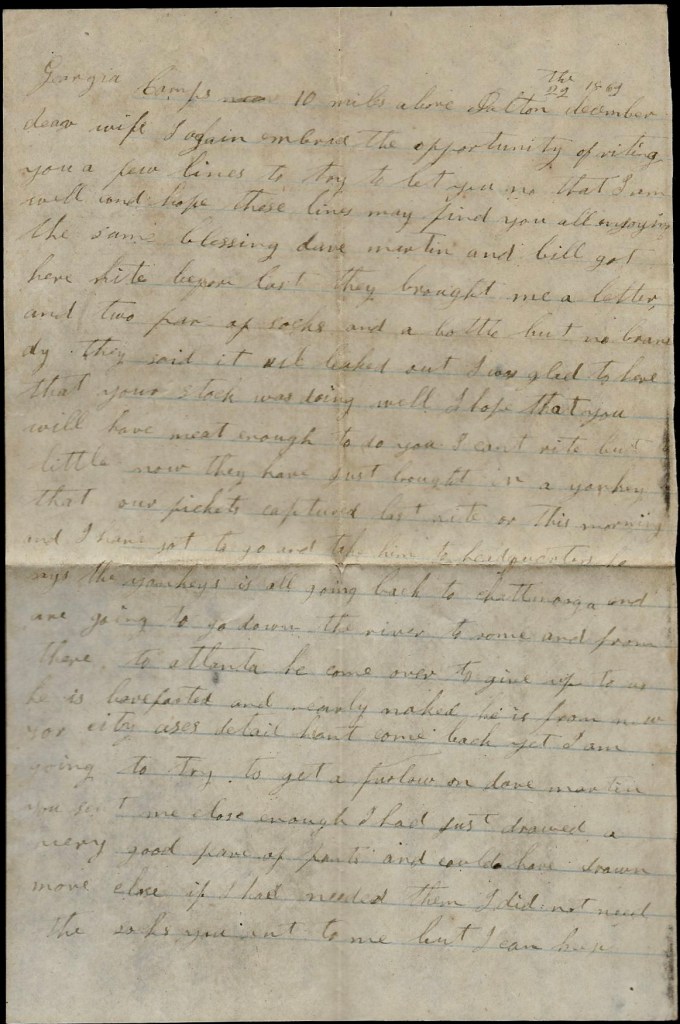 Georgia Camps 10 miles above Dalton december the 22
dear wife I again embrace the opportunity of riting
you a few lines to try to let you no that I am
well and hope these lines may find you all enjoying
the same blessing dave martin and bill got
here nite before last they brought me a letter
and two par of socks and a bottle but no bran
dy they said it all leaked out I was glad to here
that your stock was doing well I hope that you
will have meat enough to do you I cant rite but
little now they have just brought in a yankey
that our pickets captured last nite or this morning
and I have got to go and take him to headquarters he
says the yankeys is all going back to and
are going to go down the river to rome and from
there to atlanta he come over to give up to us
he is barefooted and nearly naked he is from new
yor city detail haint come back yet I am
going to try to get a furlow on dave martin
you sent me close enough I had just drawed a
very good pare of pants and could have drawn
more close if I had needed them I did not need
the socks you sent to me but I can